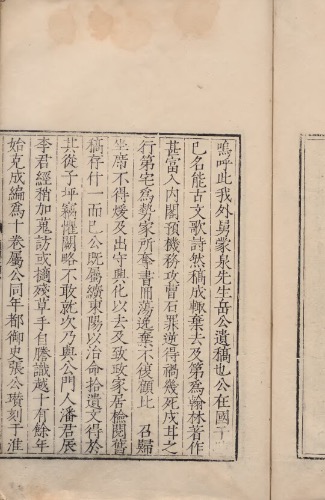 嗚呼此我外舅蒙泉先生岳公遺稿也公在國子
已名能古文歌詩然稿成輙棄去及第爲翰林著作
甚富入內閣預機務攻曹石罪逆得禍幾死戍其之
行第宅爲勢家所奪書冊蕩逸棄不復顧比 召歸
坐席不得煖及出守興化以去及致政家居檢閱舊
稿存什一而已公既屬纊東陽以治命拾遺文得於
其從子坪竊惟闕略不敢就次乃與公門人潘君辰
李君經稍加蒐訪或摘殘草手自謄識越十有餘年
始克成編爲十卷屬公同年都御史張公瓚刻于淮